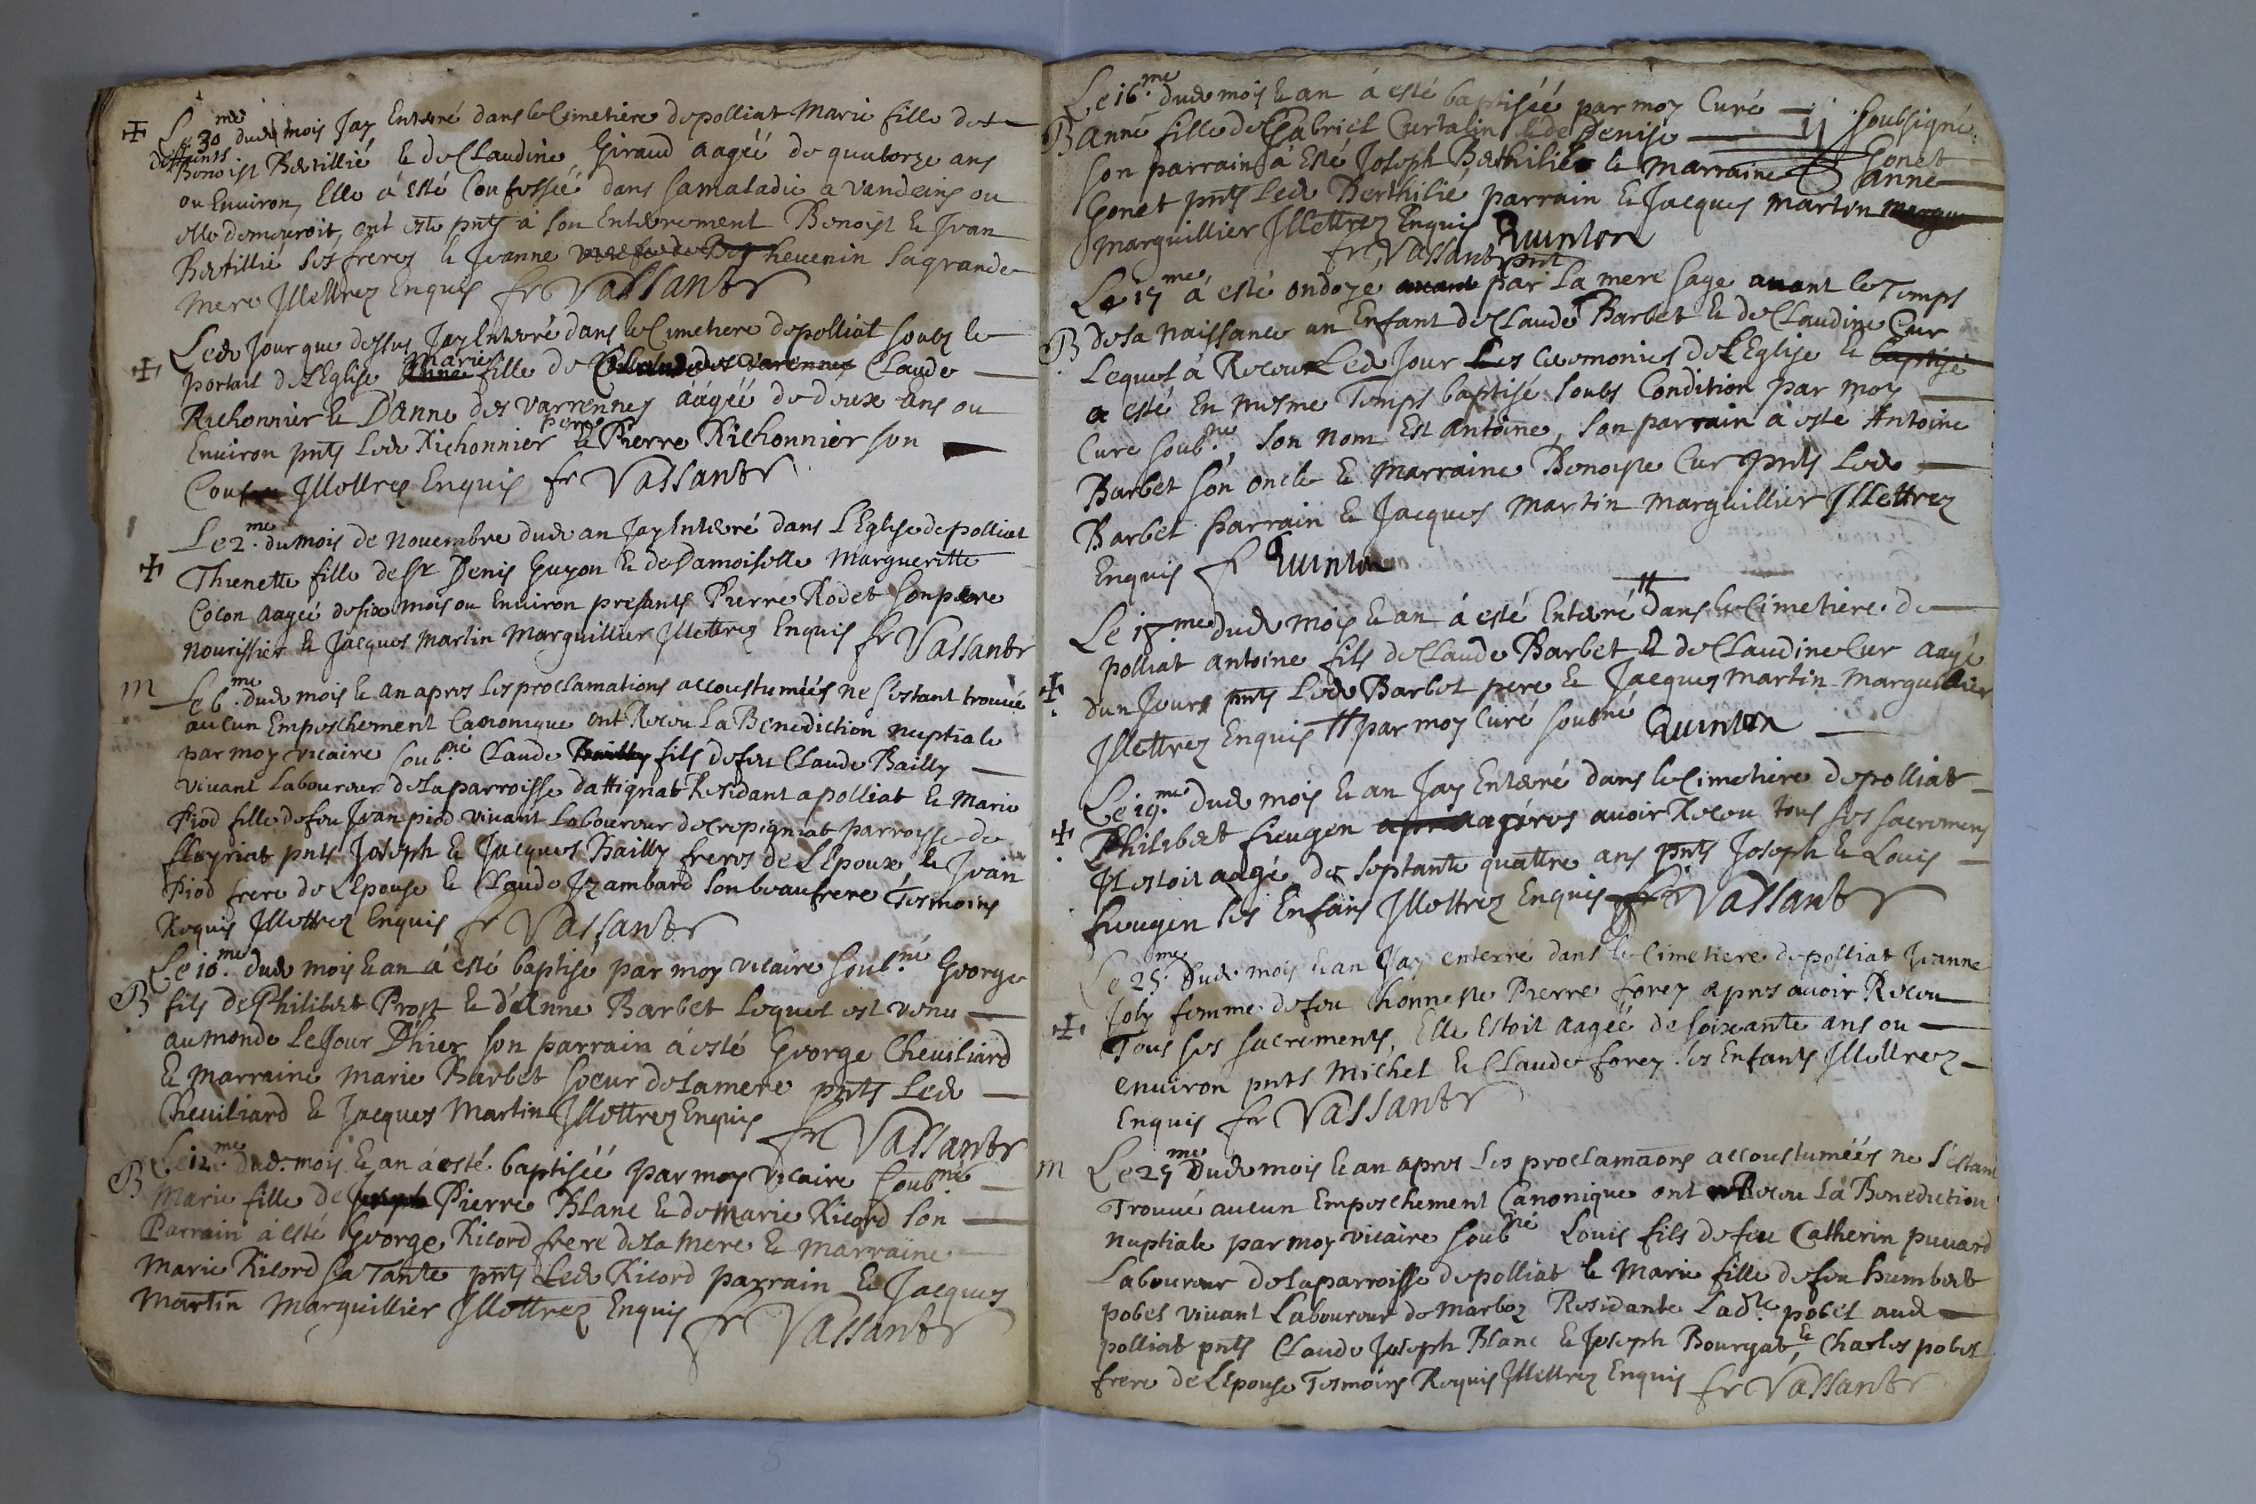 Le 30me dud. mois Jay Enterré dans le Cimetiere de polliat Marie fille des
deffuncts
Benoist Bertillié & de Claudine Giraud aagéé de quatorze ans
ou Environ, Elle à esté Confesséé dans sa maladie a Vandeins ou
elle demeuroit, ont este pnts à son Enterrement Benoist & Jvan
Bertillie ses freres & Jeanne Thevenin sa grande
Mere Jllettrez Enquis fr Vassantr
Led. Jour que dessus Jay Enterré dans le Cimetiere de polliat soubs le
portail de l'Eglise Marie fille de Claude
Richonnier & D'anne des Varrennes ààgéé de deux ans ou
Environ pnts Led. Richonnier pere & Pierre Richonnier son
Jllettrez Enquis fr Vassantr
Le 2.me du mois de Novembre dud. an Jay Enterré dans L'Eglise de polliat
Thienette fille de Sr Denis Guyon & de Damoiselle Margueritte
Colon aagéé de six mois ou Environ presants Pierre Rodet son pere
nourissier & Jacques Martin Marguillier Jllettrez Enquis fr Vassantr
m Le 6.me dud. mois & an apres les proclamations accoustuméés ne s'estant trouué
aucun Empeschement Canonique ont Receu La Benediction nuptiale
par moy vicaire soub.né Claude fils de feu Claude Bailly
vivant Laboureur de la parroisse dattignat Residant a polliat & Marie
Piod fille de feu Jvan piod vivant Laboureur de cropigniat parroisse de
fleyriat pnts Joseph & Jacques Bailly freres de L'Epoux, & Jvan
Piod frere de L'Epouse & Claude Jzambard son beaufrere Tesmoins
Requis Jllettrez Enquis fr Vassantr
Le 10.me dud. mois & an à esté baptisé par moy vicaire soub.né George
B fils de Philibert Prost & d'Anne Barbet Lequel est venu
au monde Le Jour D'hier son parrain à esté George Cheviliard
& Marraine Marie Barbet soeur de la mere pnts Led.
Cheviliard & Jacques Martin Jllettrez Enquis
fr Vassantr
Le 12.me Dud. mois & an à esté baptiséé par moy vicaire soub.né
B Marie fille de Pierre Blanc & de Marie Ricord son
Parrain à esté George Ricord frere de sa mere & Marraine
Marie Ricord sa Tante pnts Led. Ricord parrain & Jacques
Martin Marguillier Jllettrez Enquis fr Vassantr
Le 16.me dud. mois & an à esté baptiséé par moy Curé soubsigné
B Anne fille de Gabriel Curtalin & de Denise Gonet
son parrain à Esté Joseph Berthilié & Marraine anne
Gonet pnts Led. Berthilié parrain & Jacques Martin
Marguillier Jllettrez Enquis Quinton
fr Vassantr pnt
Le 17me à esté ondoye par La mere sage avant le Temps
B de sa naissance un Enfant de Claude Barbet & de Claudine Cur
Lequel à Receu Led. Jour Les Ceremonies de L'Eglise &
a esté En mesme Temps baptisé soubs Condition par moy
Curé soub.né, son nom Est Antoine, son parrain à este Antoine
Barbet son oncle & Marraine Benoiste Cur pnts Led.
Barbet parrain & Jacques Martin Marguillier Jllettrez
Enquis fr Quinton
Le 18me dud. mois & an à esté Enterré # dans le Cimetiere de
polliat Antoine fils de Claude Barbet & de Claudine Cur aagé
dun Jour pnts Led. Barbet pere & Jacques Martin Marguillier
Jllettrez Enquis # par moy Curé soubné Quinton
Le 19.me dud. mois & an Jay Enterré dans le Cimetiere de polliat
Philibert freugen apres avoir Receu tous ses sacremens
Jl estoit aagé de septante quattre ans pnts Joseph & Louis
freugen ses Enfans Jllettrez Enquis fr Vassantr
Le 25.me Dud. mois & an Jay enterré dans le Cimetiere de polliat Jeanne
Joly femme de feu honneste Pierre forez apres avoir Receu
Tous ses sacrements, Elle Estoit aagéé de soixante ans ou
environ pnts Michel & Claude forez ses Enfants Jllettrez
Enquis fr Vassantr
m Le 27me Dud. mois & an apres Les proclamaons accoustuméés ne s'estant
Trouué aucun Empeschement Canonique ont Receu La Benediction
nuptiale par moy vicaire soubné Louis fils de feu Catherin puvard
Laboureur de la parroisse de polliat & Marie fille de feu humbert
pobel vivant Laboureur de Marboz Residante Lad.te pobel aud.
polliat pnts Claude Joseph Blanc & Joseph Bourgat, & Charles pobel
frere de L'Epouse Tesmoins Requis Jllettrez Enquis fr Vassantr